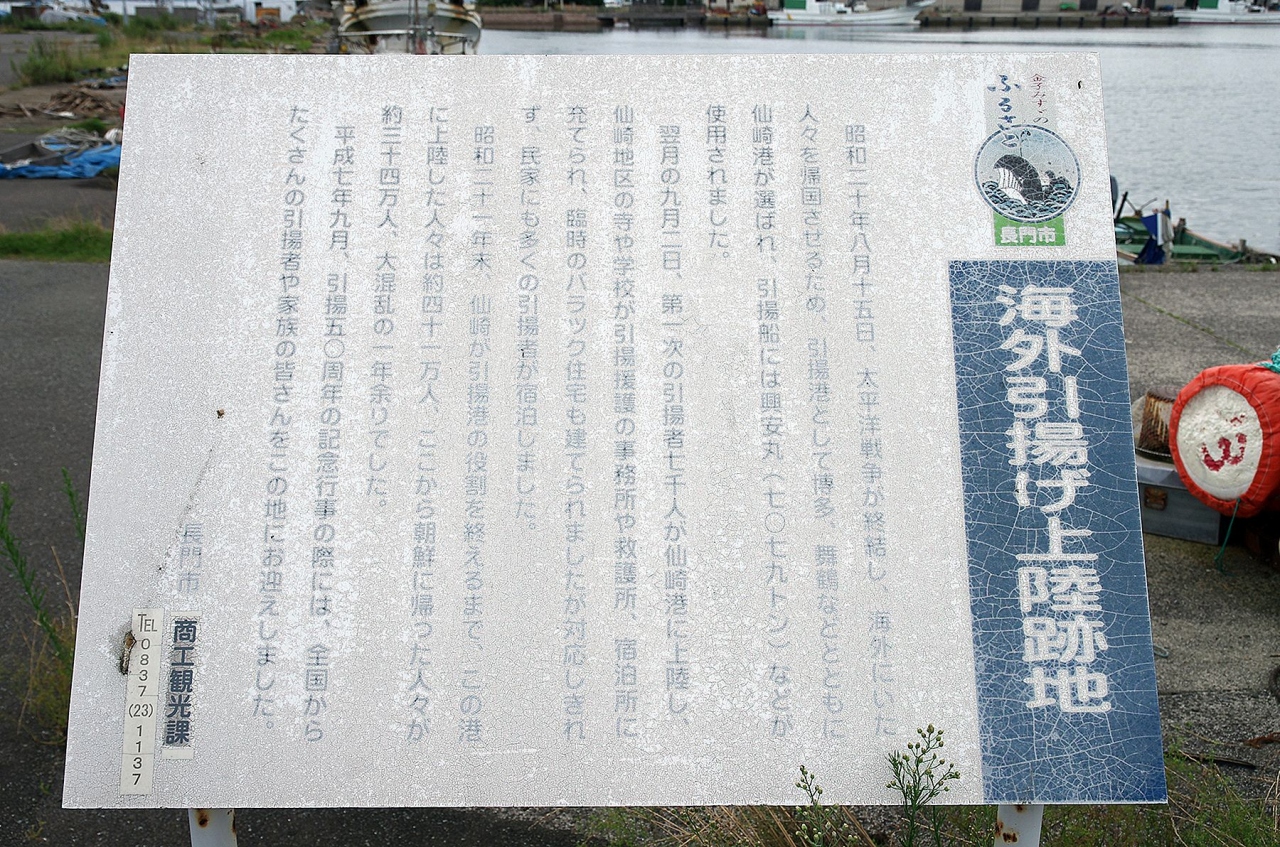 金子みすゞの
ふるさと
長門市
海外引揚げ上陸跡地
昭和二十年八月十五日、太平洋戦争が終結し、海外にいた
人々を帰国させるため、引揚港として博多、舞鶴などとともに
仙崎港が選ばれ、引揚船には興安丸（七〇七九トン）などが
使用されました。
翌月の九月二日、第一次の引揚者七千人が仙崎港に上陸し、
仙崎地区の寺や学校が引揚援護の事務所や救護所、宿泊所に
充てられ、臨時のバラック住宅も建てられましたが対応しきれ
ず、民家にも多くの引揚者が宿泊しました。
昭和二十一年末、仙崎が引揚港の役割を終えるまで、この港
に上陸した人々は約四十一万人、ここから朝鮮に帰った人々が
約三十四万人、大混乱の一年余りでした。
平成七年九月、引揚五〇周年の記念行事の際には、全国から
たくさんの引揚者や家族の皆さんをこの地にお迎えしました。
長門市
商工観光課
TEL 0837(23)1137